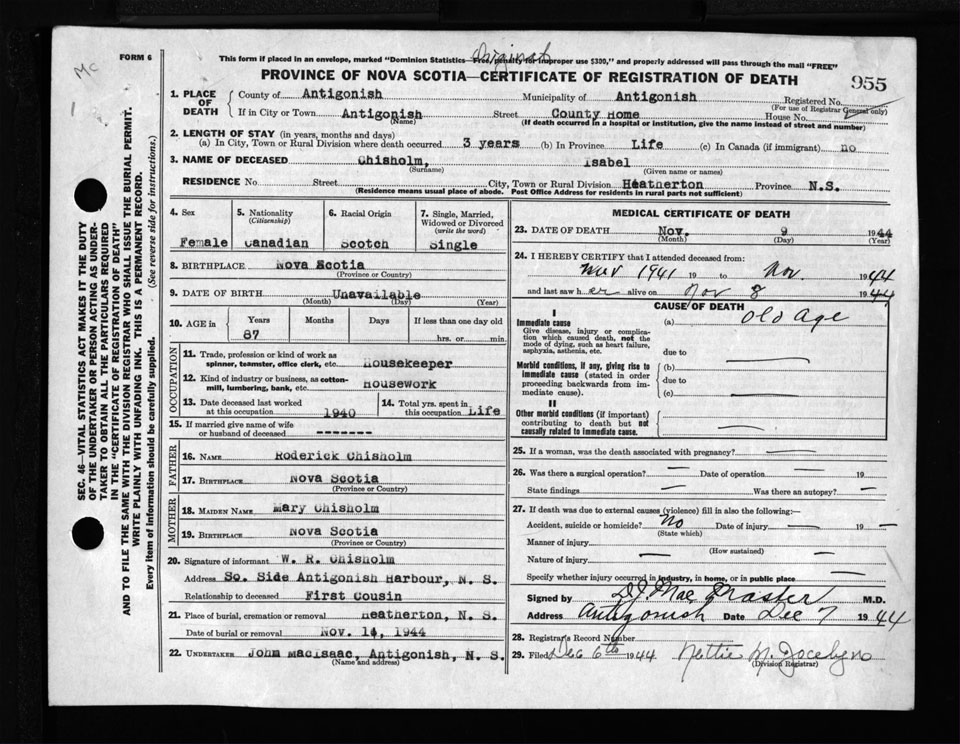 Original
FORM 6
Mc
This form if placed in an envelope, marked "Dominion Statistics—Free, penalty for improper use $300," and properly addressed will pass through the mail "FREE"
PROVINCE OF NOVA SCOTIA—CERTIFICATE OF REGISTRATION OF DEATH
955
1. PLACE OF DEATH
County of Antigonish Municipality of Antigonish Registered No.
(For use of Registrar General only)
If in City or Town Antigonish Street County Home House No.
(Name) (If death occurred in a hospital or institution, give the name instead of street and number)
2. LENGTH OF STAY (in years, months and days)
(a) In City, Town or Rural Division where death occurred 3 years (b) In Province Life (c) In Canada (if immigrant) no
3. NAME OF DECEASED Chisholm, Isabel
(Surname) (Given name or names)
RESIDENCE No Street City, Town or Rural Division Heatherton Province N.S.
(Residence means usual place of abode. Post Office Address for residents in rural parts not sufficient)
4. Sex Female
5. Nationality (Citizenship) Canadian
6. Racial Origin Scotch
7. Single, Married, Widowed or Divorced (write the word) Single
8. BIRTHPLACE Nova Scotia
(Province or Country)
9. DATE OF BIRTH Unavailable
(Month) (Day) (Year)
10. AGE in Years Months Days If less than one day old
87 hrs. or min.
OCCUPATION
11. Trade, profession or kind of work as spinner, teamster, office clerk, etc. Housekeeper
12. Kind of industry or business, as cotton-mill, lumbering, bank, etc. Housework
13. Date deceased last worked at this occupation 1940
14. Total yrs. spent in this occupation Life
15. If married give name of wife or husband of deceased -------
FATHER
16. NAME Roderick Chisholm
17. BIRTHPLACE Nova Scotia
(Province or Country)
MOTHER
18. MAIDEN NAME Mary Chisholm
19. BIRTHPLACE Nova Scotia
(Province or Country)
20. Signature of informant W. R. Chisholm
Address So. Side Antigonish Harbour, N. S.
Relationship to deceased First Cousin
21. Place of burial, cremation or removal Heatherton, N. S.
Date of burial or removal Nov. 11, 1944
22. UNDERTAKER John MacIsaac, Antigonish, N. S.
(Name and address)
MEDICAL CERTIFICATE OF DEATH
23. DATE OF DEATH Nov. 9 1944
(Month) (Day) (Year)
24. I HEREBY CERTIFY that I attended deceased from:
1941 19 to Nov. 1944
and last saw her alive on Nov 8 1944
CAUSE OF DEATH
I
Immediate cause
Give disease, injury or complication which caused death, not the mode of dying, such as heart failure, asphyxia, asthenia, etc.
(a) Old Age
due to
Morbid conditions, if any, giving rise to immediate cause (stated in order proceeding backwards from immediate cause).
(b)
due to
(c)
II
Other morbid conditions (if important) contributing to death but not causally related to immediate cause.
25. If a woman, was the death associated with pregnancy? —
26. Was there a surgical operation? — Date of operation — 19 —
State findings — Was there an autopsy? —
27. If death was due to external causes (violence) fill in also the following:—
Accident, suicide or homicide? No Date of injury — 19 —
(State which)
Manner of injury
(How sustained)
Nature of injury — —
Specify whether injury occurred in industry, in home, or in public place —
Signed by D J MacMaster M.D.
Address Antigonish Date Dec 7 1944
28. Registrar's Record Number
29. Filed Dec 6th 1944 Nettie M. Jocelyn
(Division Registrar)
SEC. 46—VITAL STATISTICS ACT MAKES IT THE DUTY
OF THE UNDERTAKER OR PERSON ACTING AS UNDER-
TAKER TO OBTAIN ALL THE PARTICULARS REQUIRED
IN THE "CERTIFICATE OF REGISTRATION OF DEATH"
AND TO FILE THE SAME WITH THE DIVISION REGISTRAR WHO SHALL ISSUE THE BURIAL PERMIT.
WRITE PLAINLY WITH UNFADING INK. THIS IS A PERMANENT RECORD.
Every item of information should be carefully supplied. (See reverse side for instructions.)